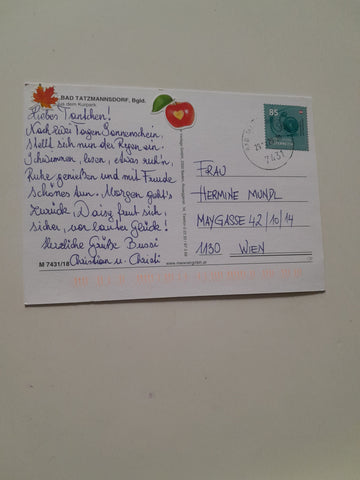 BAD TATZMANNSDORF, Bgld.
aus dem Kurpark
Liebes Tantchen!
Nach zwei Tagen Sonnenschein,
stellt sich nun der Regen ein.
Schwimmen, lesen, etwas ruh'n,
Ruhe genießen und mit Freude
Schönes tun. Morgen geht's
zurück, Daisy freut sich,
sicher, vor lauter Glück!
Herzliche Grüße Bussi
Christian u. Christl
M 7431/18
85
7431
FRAU
HERMINE MUNDL
MAYGASSE 42/10/14
1130 WIEN